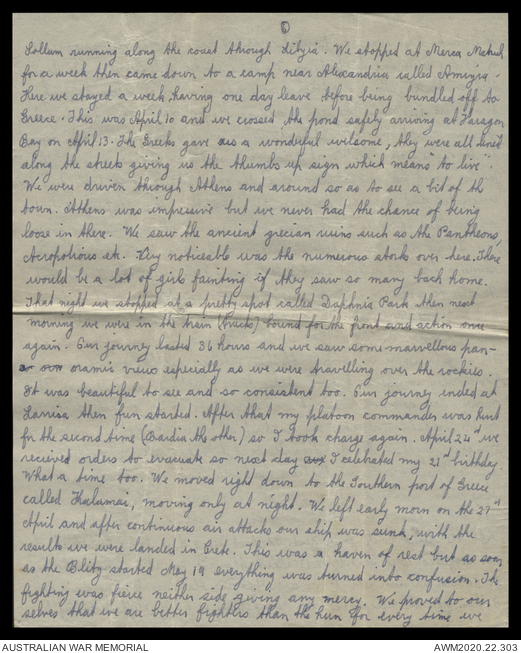 Sollum running along the coast through Libyia. We stopped at Mersa Matruh
for a week then came down to a camp near Alexandria called Amiryia.
Here we stayed a week, having one day leave before being bundled off to
Greece. This was April 10 and we crossed the pond safely arriving at
Bay on April 13. The Greeks gave us a wonderful welcome, they were all lined
along the streets giving us the thumbs up sign which means "to live".
We were driven through Athens and around so as to see a bit of th
town. Athens was impressive but we never had the chance of being
loose in there. We saw the ancient grecian ruins such as the Pantheons,
Acropolious etc. Very noticeable was the numerous storks over here. There
would be a lot of girls fainting if they saw so many back home.
That night we stopped at a pretty spot called Daphnia Park then next
morning we were in the train (truck) bound for the front and action once
again. Our journey lasted 36 hours and we saw some marvellous pan-
oramic views especially as we were travelling over the rockies.
It was beautiful to see and so consistent too. Our journey ended at
Larrisa then fun started. After that my platoon commander was hurt
for the second time (Bardia the other) so I took charge again. April 24th we
received orders to evacuate so next day I celebrated my 21st birthday.
What a time too. We moved right down to the Southern port of Greece
called Kalamai, moving only at night. We left early morn on the 27th
April and after continuous air attacks our ship was sunk, with the
results we were landed in Crete. This was a haven of rest but as soon
as the Blitz started May 19 everything was turned into confusion. The
fighting was fierce neither side giving any mercy. We proved to our
selves that we are better fighters than the hun for every time we
AUSTRALIAN WAR MEMORIAL
AWM2020.22.303